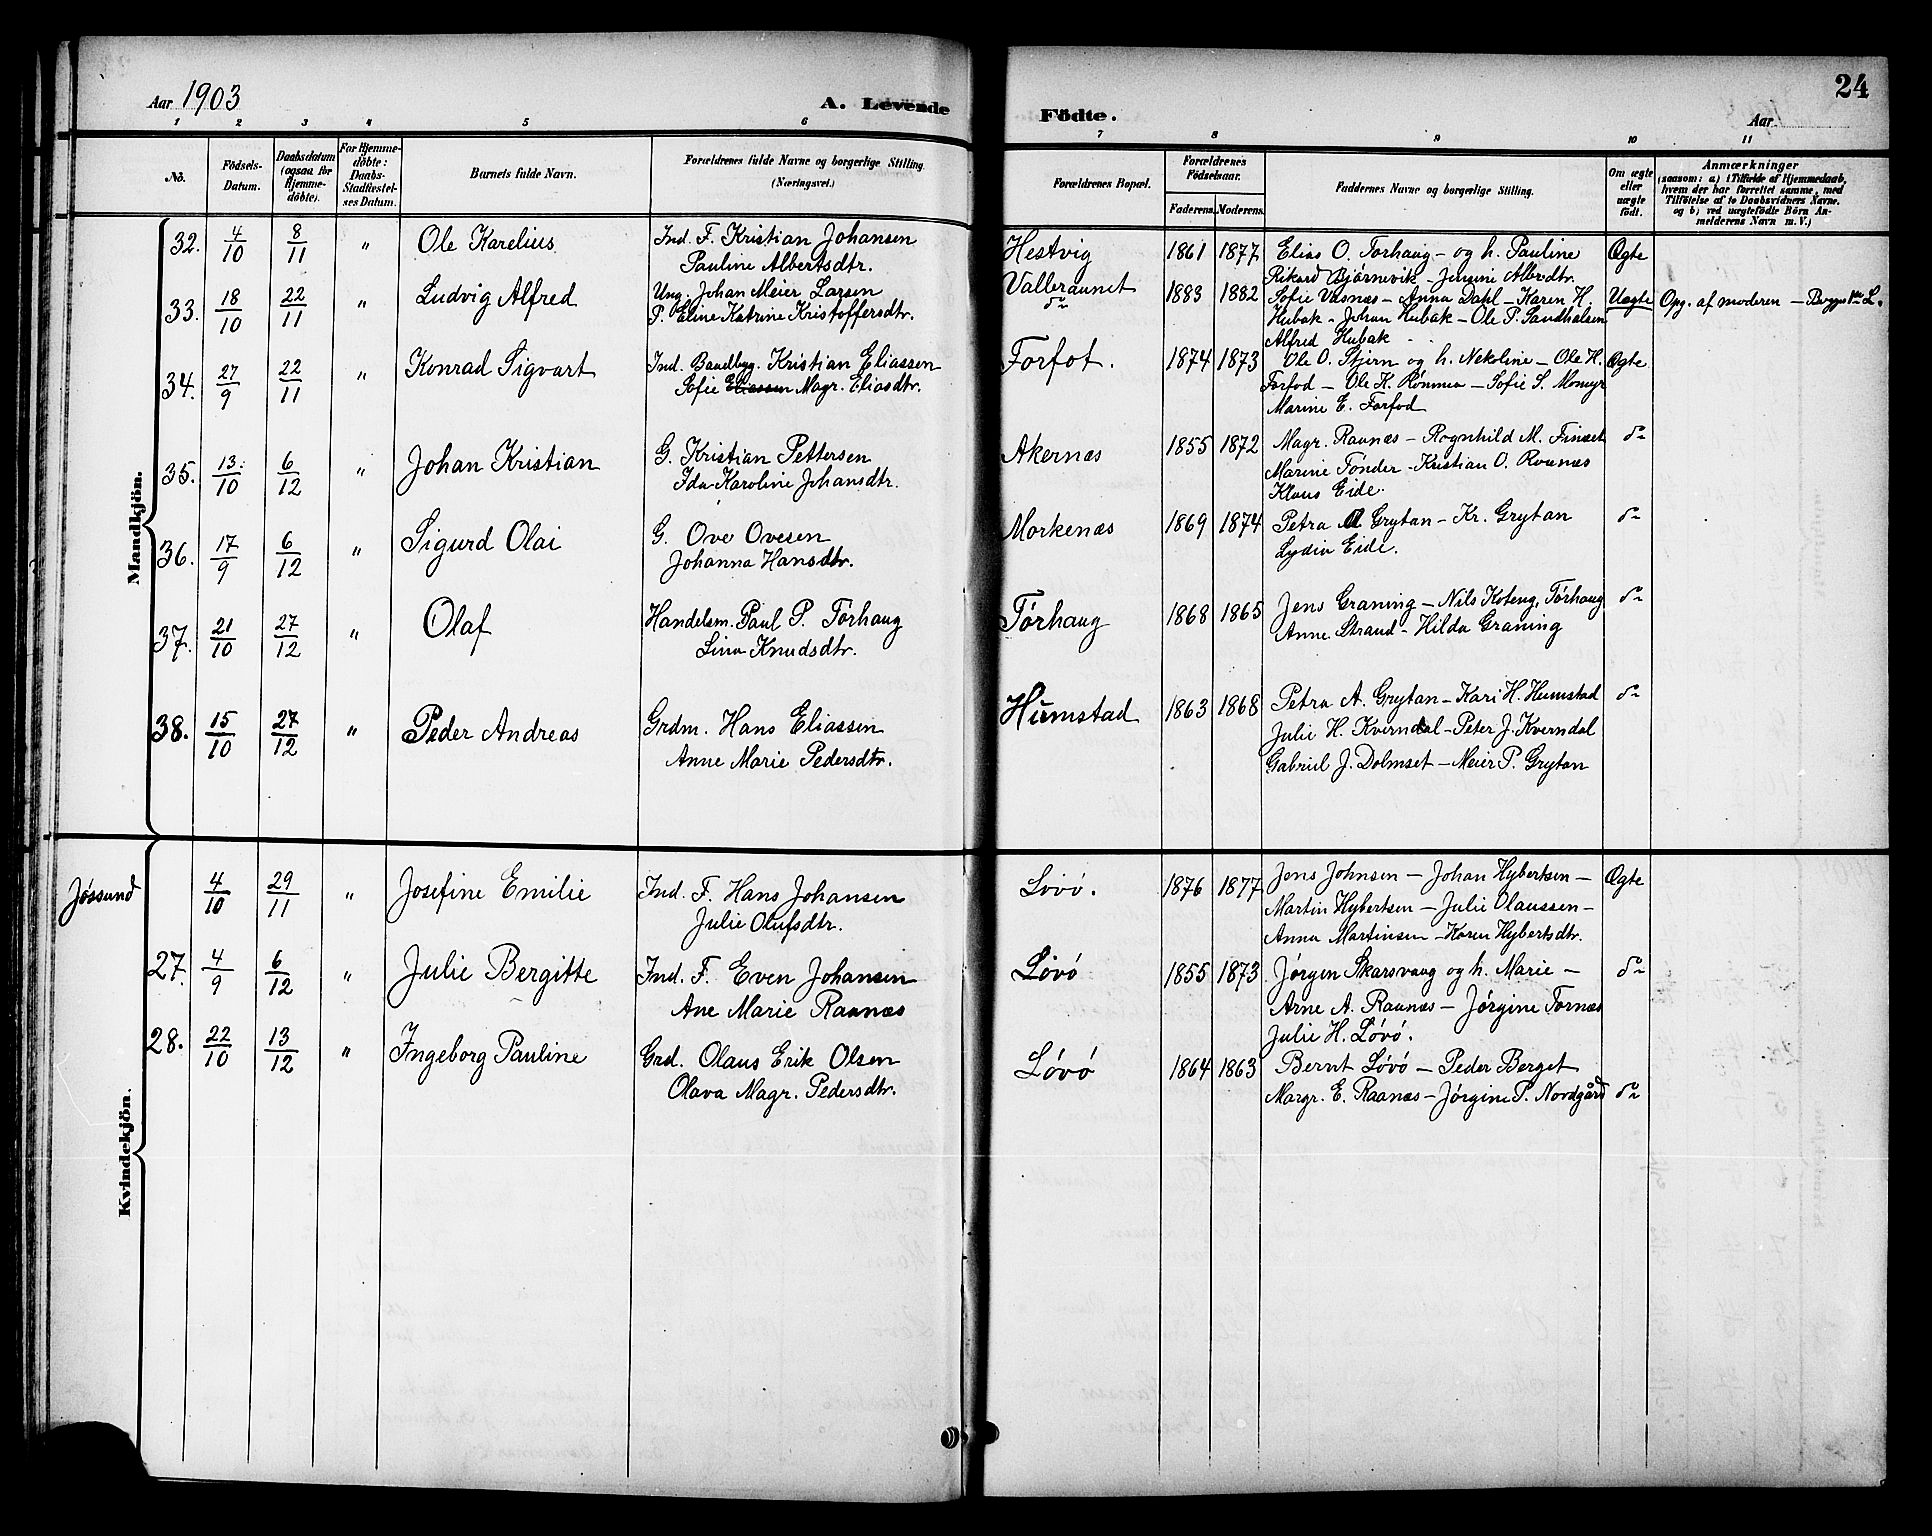 Aar 1903
A. Levende
Födte.
Aar
24
1 2 3 4 5 6 7 8 9 10 11
No.
Födsels-
Datum.
Daabsdatum
(ogsaa for
Hjemme-
döbte).
For Hjemme-
döbte:
Daabs-
Stadfæstel-
ses Datum.
Barnets fulde Navn.
Forældrenes fulde Navne og borgerlige Stilling
(Næringsvei.)
Forældrenes Bopæl.
Forældrenes
Födselsaar.
Faderens. Moderens.
Faddernes Navne og borgerlige Stilling.
Om ægte
eller
uægte
födt.
Anmærkninger
(saasom: a) i Tilfælde af Hjemmedaab,
hvem der har forrettet samme, med
Tilföielse af to Daabsvidners Navne,
og b) ved uægtefödte Börn An-
melderens Navn m. V.)
Mandkjön.
32. 4/10 8/11 " Ole Karelius Ind. F. Kristian Johansen
Pauline Albertsdtr.
Hestvig 1861 1877 Elias O. Torhaug - og h. Pauline Ægte
Rikard Bjørnevik - Jensine Albrdtr.
33. 18/10 22/11 " Ludvig Alfred Ung. Johan Meier Larsen
P. Eline Katrine Kristoffersdtr.
Valbraunet
do 1883 1882 Sofie Vasnæs - Anna Dahl - Karen H. Uægte Opg. af moderen -
Hubak - Johan Hubak - Ole P. Sandhalsen
Alfred Hubak
34. 27/9 22/11 " Konrad Sigvart Ind. Baadbyg. Kristian Eliassen
Sofie Eliassen Magr. Eliasdtr.
Forfot. 1874 1873 Ole O. Stjern og h. Nekoline - Ole H. Ægte
Forfod - Ole K. Rønmen - Sofie S. Momyr
Marine E. Forfod
35. 13/10 6/12 " Johan Kristian G. Kristian Pettersen
Ida Karoline Johansdtr.
Akernæs 1855 1872 Magr. Raanæs - Rognhild M. Finset do
Marine Tønder - Kristian O. Roanæs
Klaus Eide.
36. 17/9 6/12 " Sigurd Olai G. Ove Ovesen
Johanna Hansdtr.
Morkenæs 1869 1874 Petra A Grytan - Kr. Grytan do
Lydia Eide.
37. 21/10 27/12 " Olaf Handelsm. Paul P. Tørhaug
Lina Knudsdtr.
Tørhaug 1868 1865 Jens Graning - Nils Koteng, Tørhaug do
Anne Strand - Hilda Graning
38. 15/10 27/12 " Peder Andreas Grdm. Hans Eliassen
Anne Marie Pedersdtr.
Humstad 1863 1868 Petra A. Grytan - Kari H. Humstad do
Julie H. Kverndal - Peter J. Kverndal
Gabriel J. Dolmset - Meier P. Grytan
Kvindekjön.
Jøssund 4/10 29/11 " Josefine Emilie Ind. F. Hans Johansen
Julie Olufsdtr.
Løvø. 1876 1877 Jens Johnsen - Johan Hybertsen - Ægte
Martin Hybertsen - Julie Olaussen -
Anna Martinsen - Karen Hybertsdtr.
27. 4/9 6/12 " Julie Bergitte Ind. F. Even Johansen
Ane Marie Raanæs
Løvø 1855 1873 Jørgen Skarsvaag og h. Marie - do
Arne A. Raanæs - Jørgine Tornæs
Julie H. Løvø.
28. 22/10 13/12 " Ingeborg Pauline Grd. Olaus Erik Olsen
Olava Magr. Pedersdtr.
Løvø 1864 1863 Bernt Løvø - Peder Berget
Margr. E. Raanæs - Jørgine P. Nordgård do